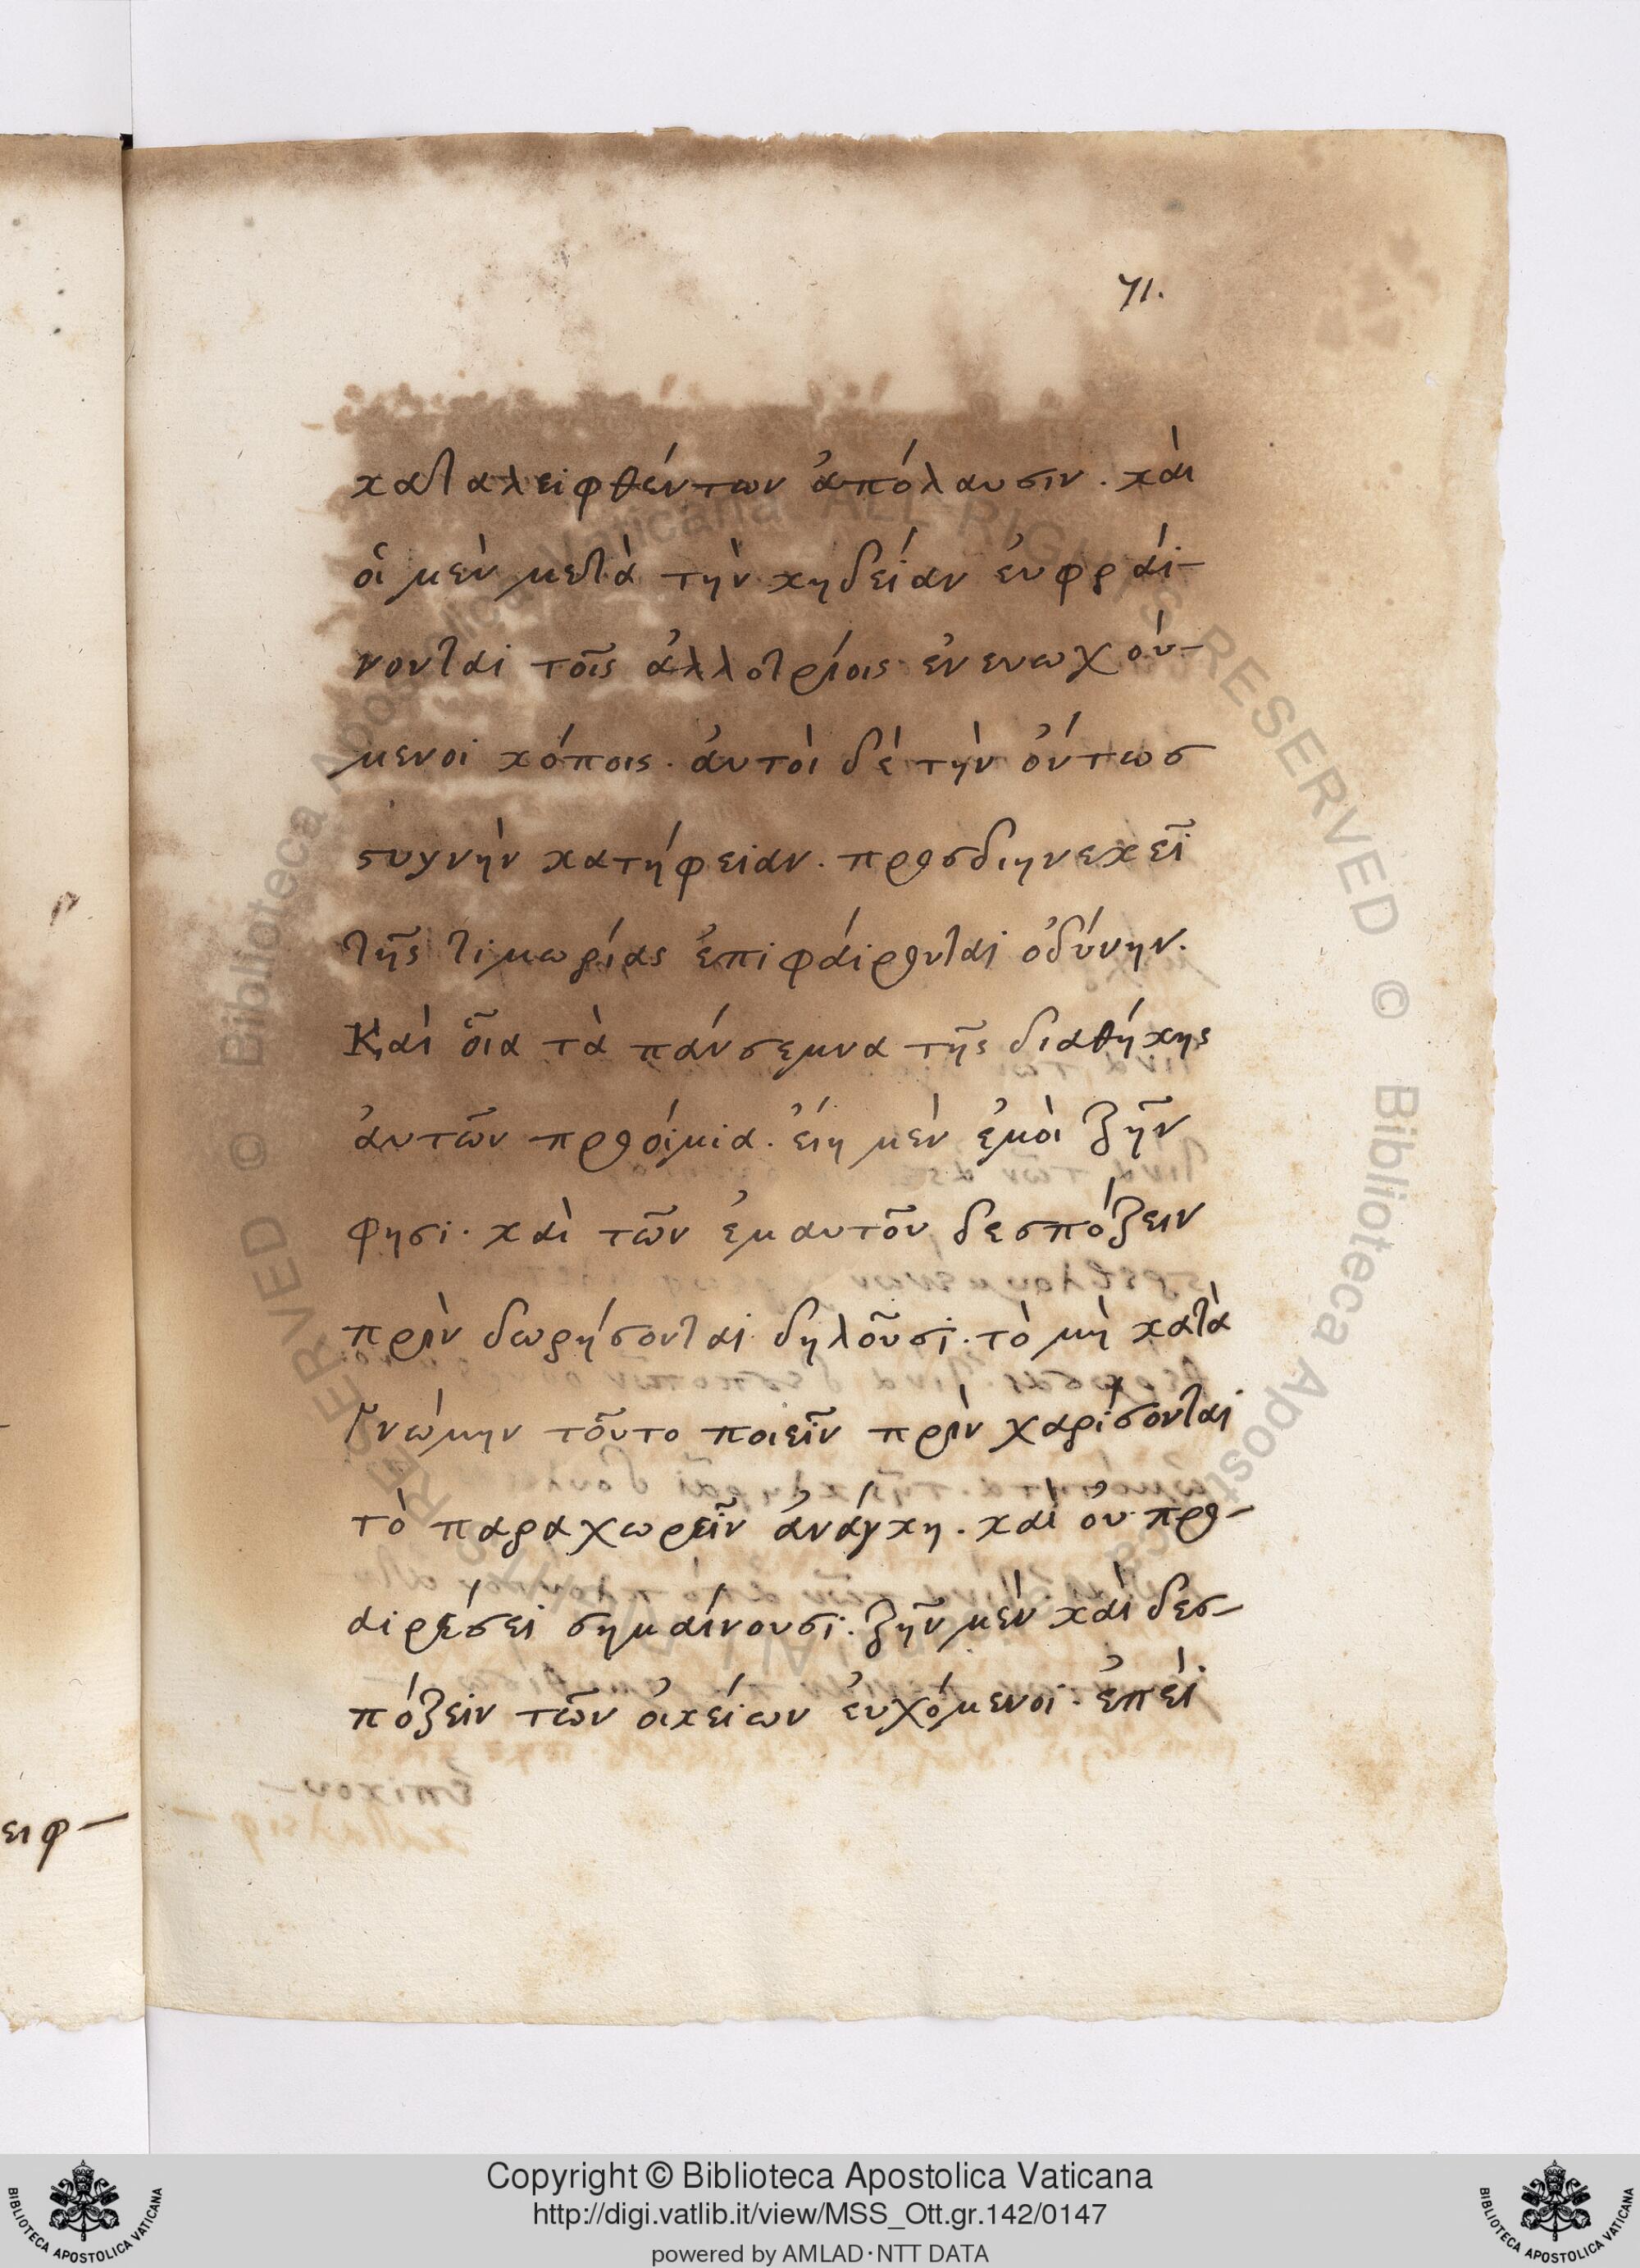 71.
καταλειφθέντων ἀπόλαυσιν. καὶ
οἱ μὲν μετὰ τὴν κηδείαν ἐυφράι-
νονται τοῖς ἀλλοτρίοις ἐνευωχόυ-
μενοι κόποις. ἀυτοὶ δὲ τὴν ὄντως
στυγνὴν κατήφειαν. πρὸς διηνεκεῖ
τῆς τιμωρίας ἐπιφάιρονται ὀδύνην.
Καὶ οἷα τὰ πάνσεμνα τῆς διαθήκης
ἀυτῶν προόιμια. ἐίη μὲν ἐμοὶ ζῆν
φησι. καὶ τῶν ἐμαυτοῦ δεσπόζειν
πρὶν δωρήσονται δηλοῦσι. τὸ μὴ κατὰ
γνώμην τοῦτο ποιεῖν πρὶν χαρίσονται
τὸ παραχωρεῖν ἀνάγκη. καὶ ὀυ προ-
αιρέσει σημαίνουσι. ζῆν μὲν καὶ δεσ-
πόζειν τῶν ὀικείων ἐυχόμενοι. ἐπεὶ
ειφ-
Copyright © Biblioteca Apostolica Vaticana
http://digi.vatlib.it/view/MSS_Ott.gr.142/0147
powered by AMLAD·NTT DATA
BIBLIOTECA APOSTOLICA VATICANA
BIBLIOTECA APOSTOLICA VATICANA